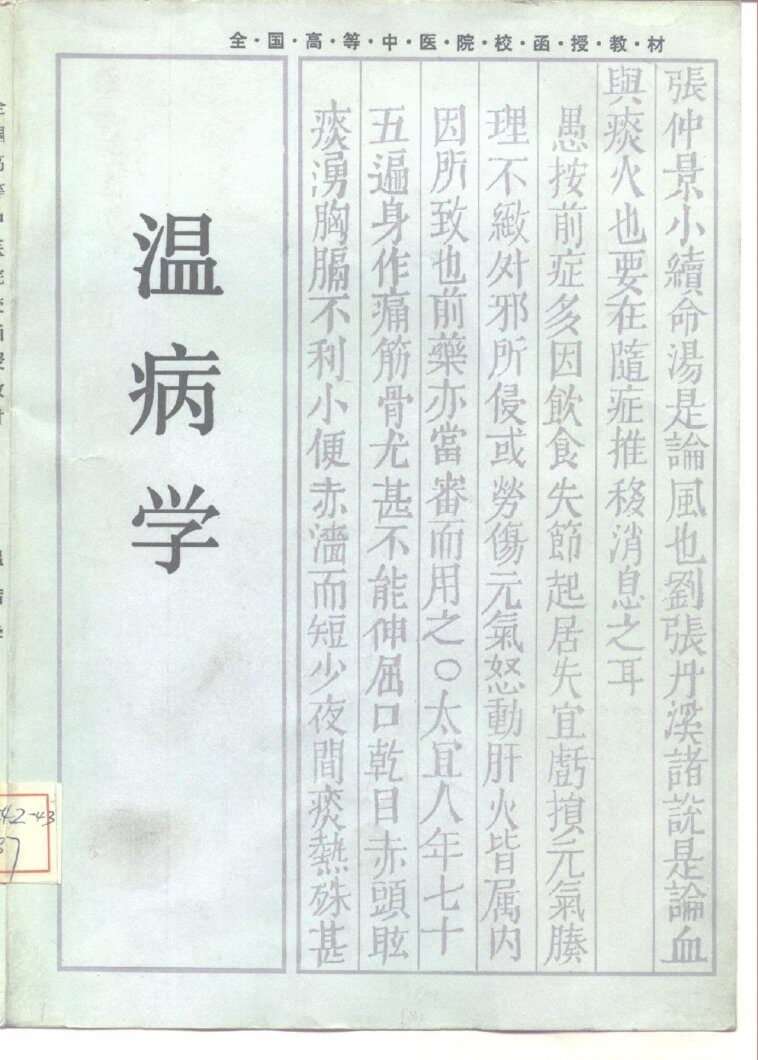 全·国·高·等·中·医·院·校·函·授·教·材
張仲景小續命湯是論風也劉張丹溪諸説是論血
與痰火也要在隨症推移消息之耳
愚按前症多因飲食失節起居失宜虧損元氣腠
理不緻外邪所侵或勞傷元氣怒動肝火皆属内
因所致也前藥亦當審而用之○太宜人年七十
五遍身作痛筋骨尤甚不能伸屈口乾目赤頭眩
痰湧胸膈不利小便赤濇而短少夜間痰熱殊甚
温病学
42-43